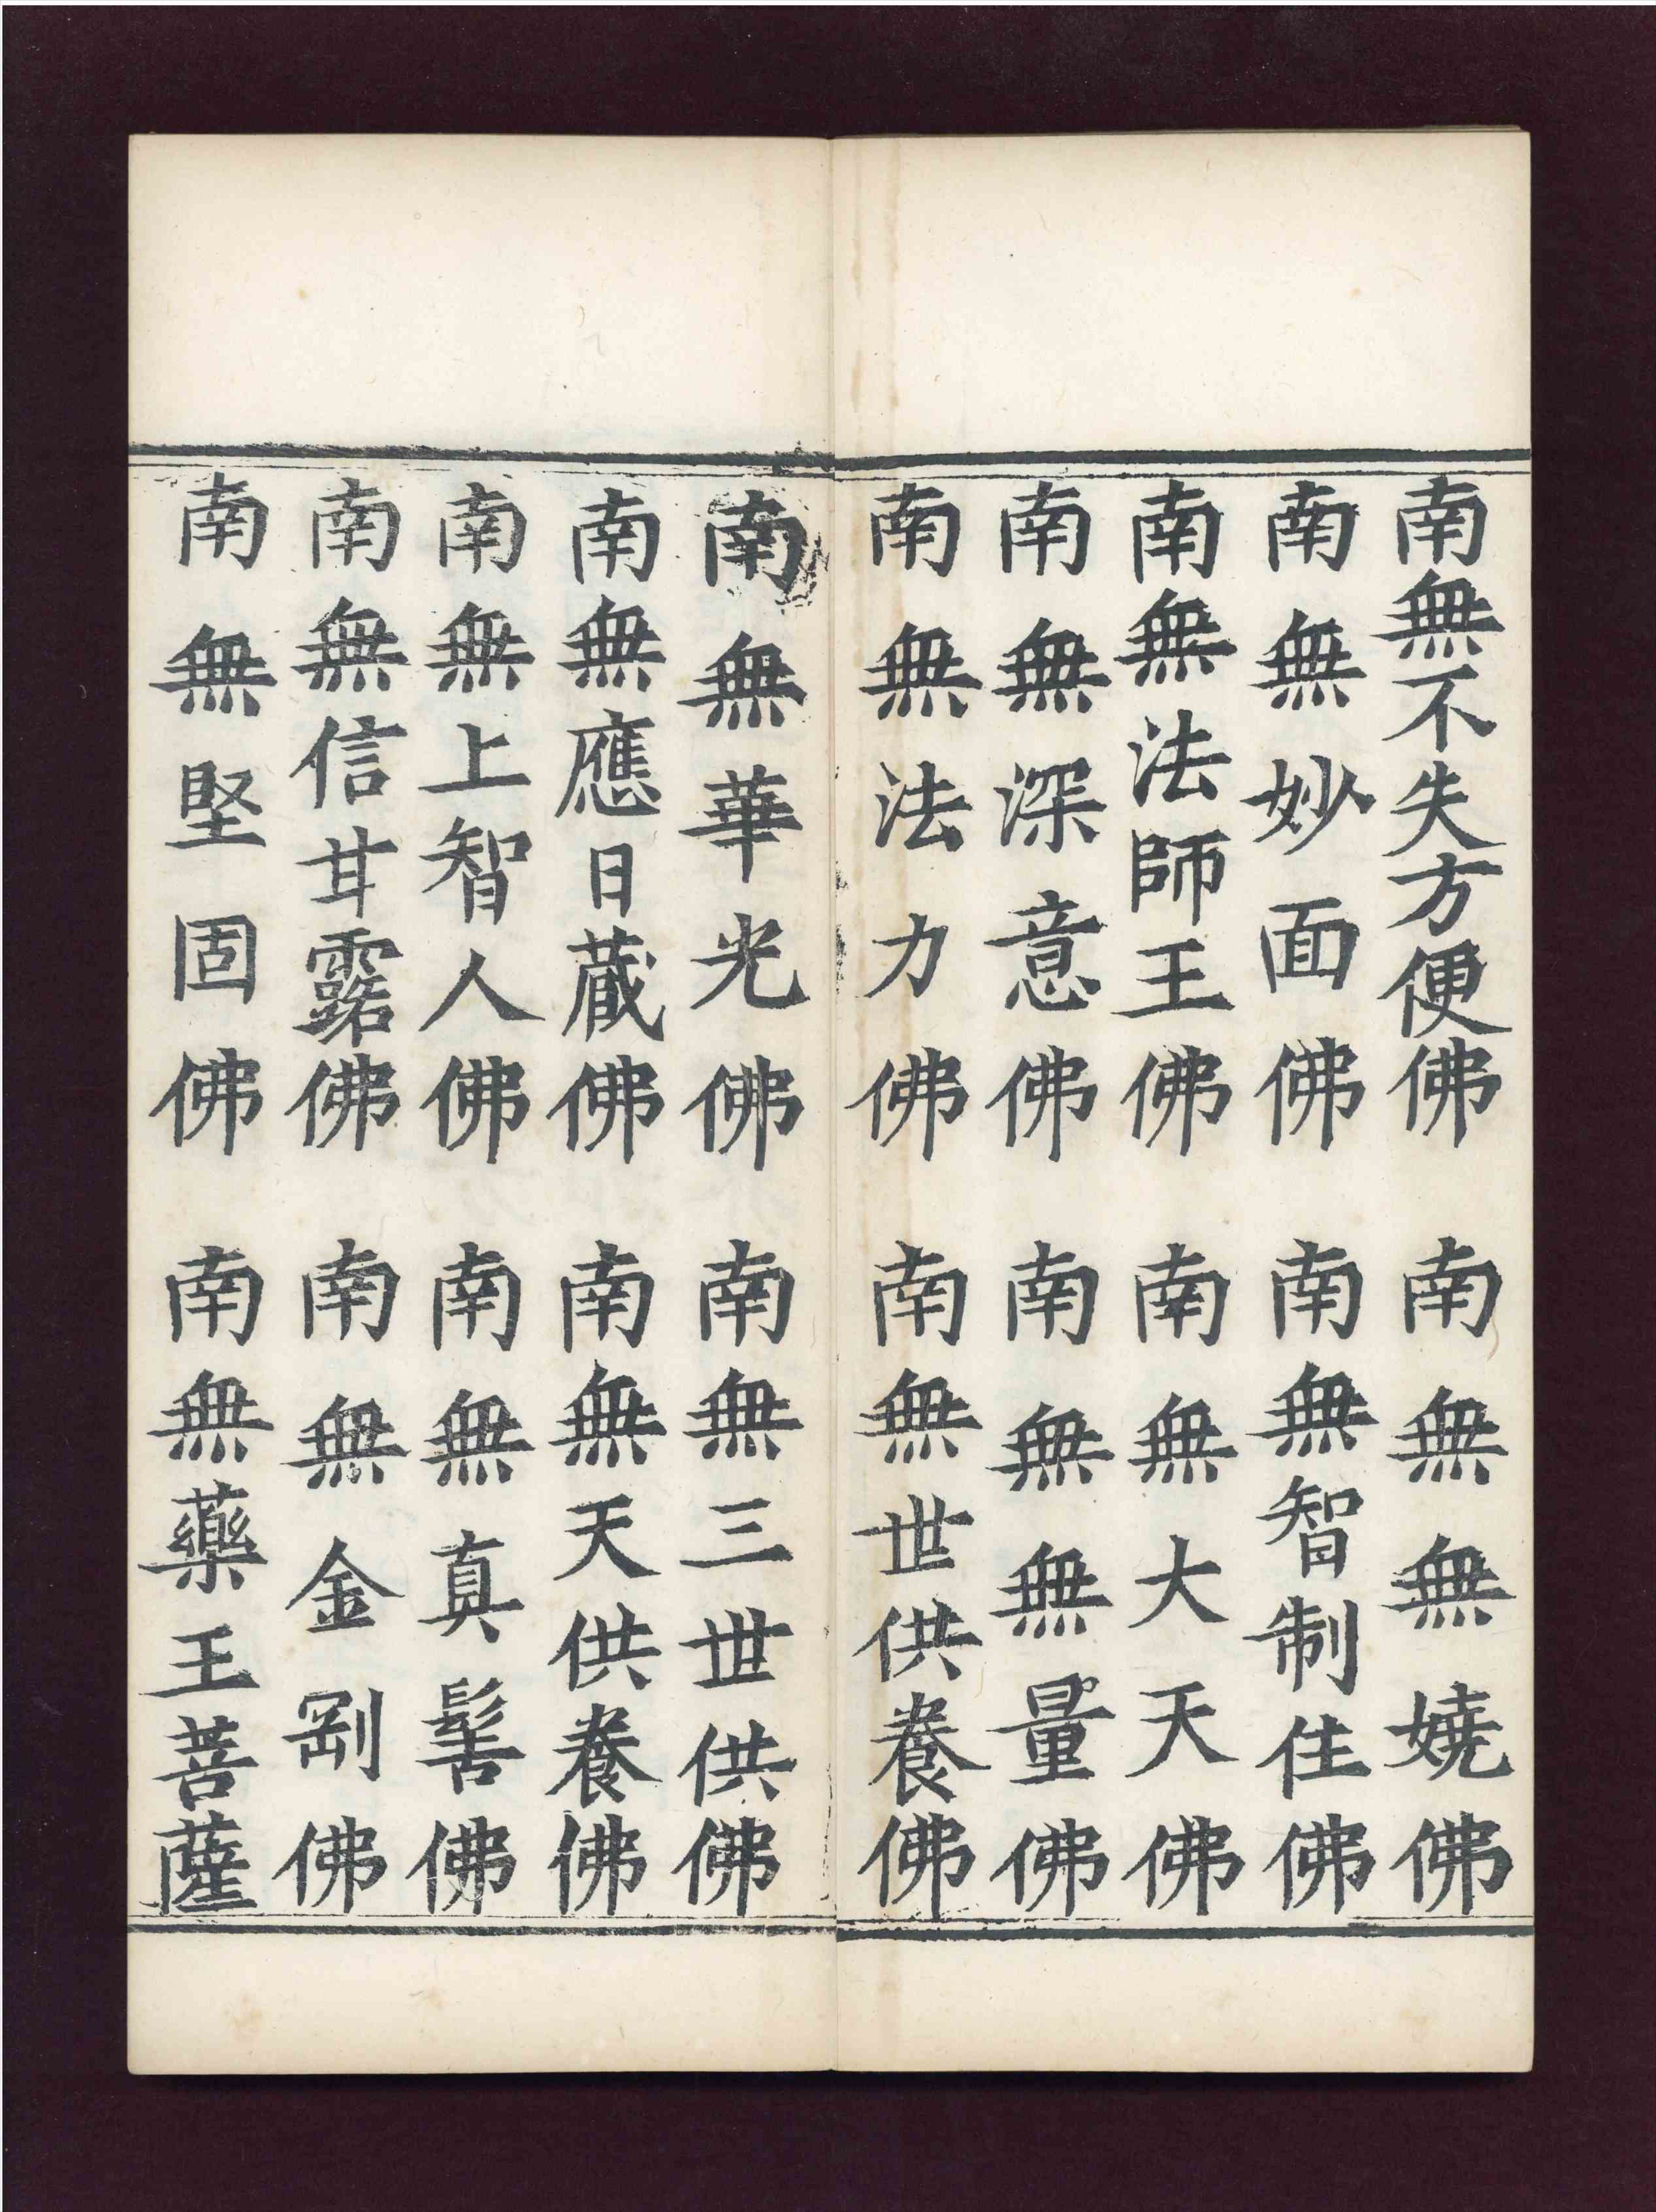 南無不失方便佛　南無無嬈佛
南無妙面佛　南無智制住佛
南無法師王佛　南無大天佛
南無深意佛　南無無量佛
南無法力佛　南無世供養佛
南無華光佛　南無三世供佛
南無應日藏佛　南無天供養佛
南無上智人佛　南無真髻佛
南無信甘露佛　南無金剛佛
南無堅固佛　南無藥王菩薩